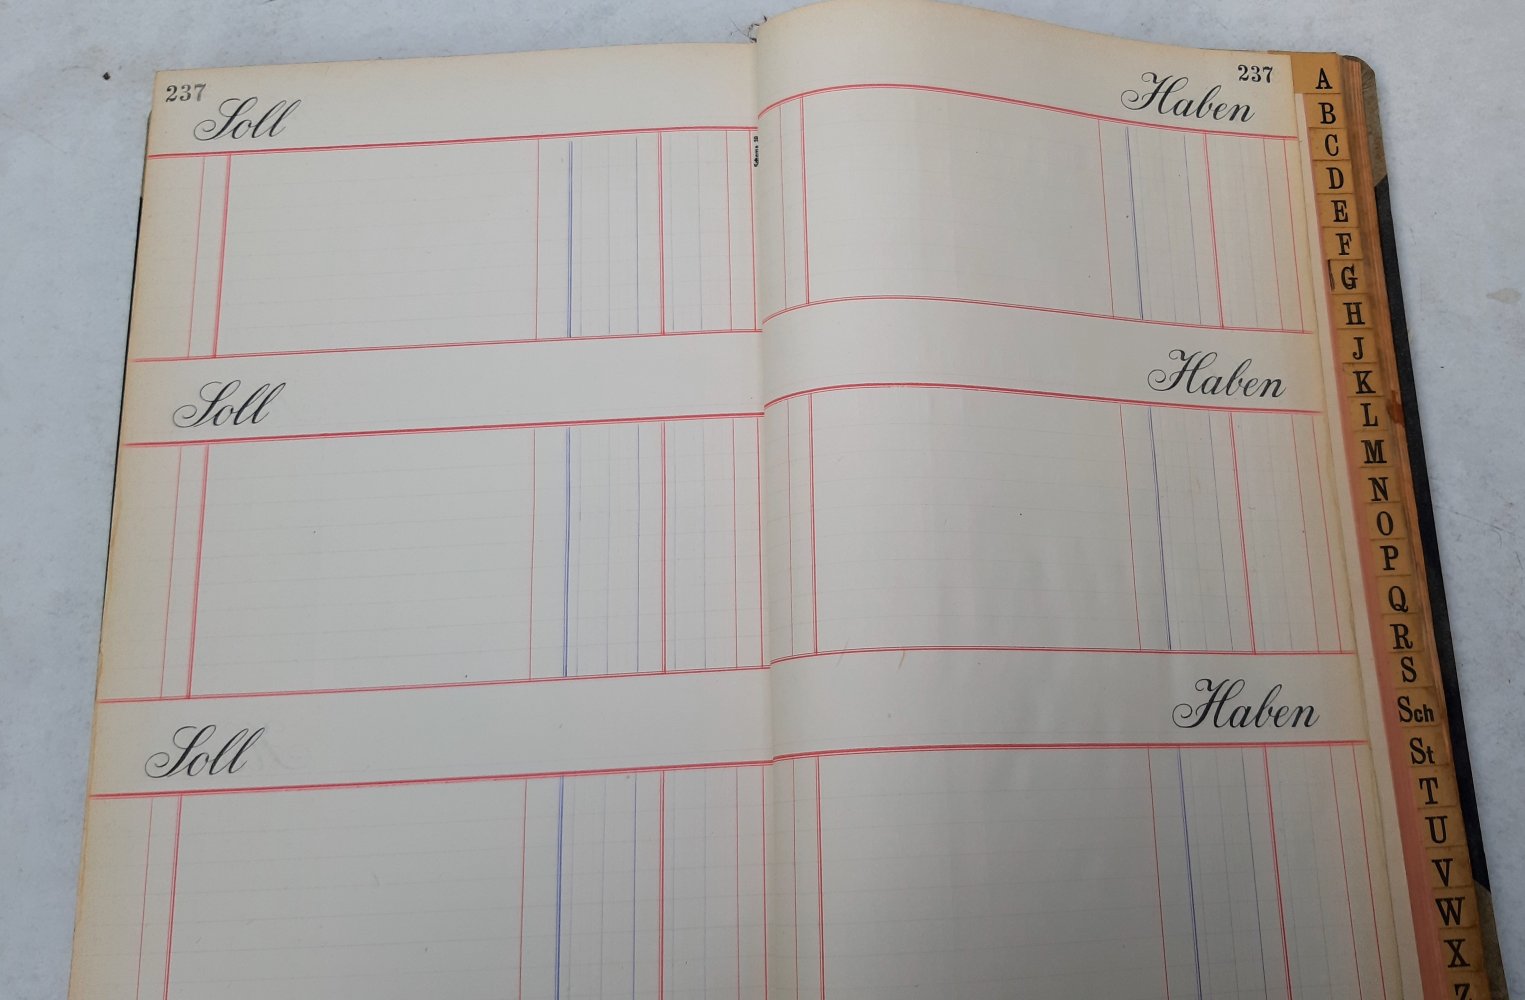 237
Soll
237
Haben
Soll
Haben
Soll
Haben
A
B
C
D
E
F
G
H
J
K
L
M
N
O
P
Q
R
S
Sch
St
T
U
V
W
X
Z